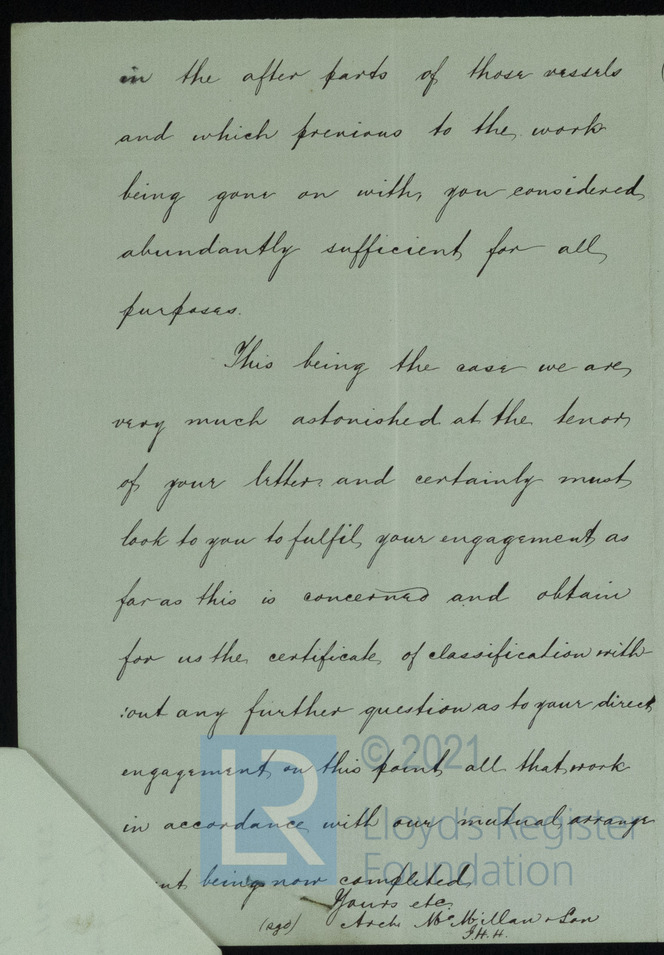 in the after parts of those vessels
and which previous to the work
being gone on with, you considered
abundantly sufficient for all
purposes.
This being the case we are
very much astonished at the tenor
of your letter and certainly must
look to you to fulfil your engagement as
far as this is concerned and obtain
for us the certificate of classification with
:out any further question as to your direct
engagement on this point all that work
in accordance with our mutual arrange
nt being now completed
Yours etc
(sgd) Archd McMillan & Son
J.H.H.
LR © 2021
Lloyd's Register
Foundation